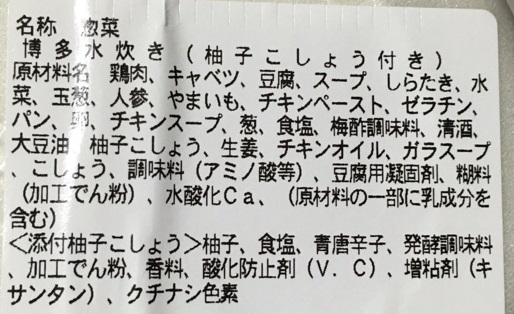 名称 惣菜
博多水炊き(柚子こしょう付き)
原材料名 鶏肉、キャベツ、豆腐、スープ、しらたき、水
菜、玉葱、人参、やまいも、チキンペースト、ゼラチン、
パン、卵、チキンスープ、葱、食塩、梅酢調味料、清酒、
大豆油、柚子こしょう、生姜、チキンオイル、ガラスープ
、こしょう、調味料(アミノ酸等)、豆腐用凝固剤、糊料
(加工でん粉)、水酸化Ca、(原材料の一部に乳成分を
含む)
<添付柚子こしょう>柚子、食塩、青唐辛子、発酵調味料
、加工でん粉、香料、酸化防止剤(V.C)、増粘剤(キ
サンタン)、クチナシ色素